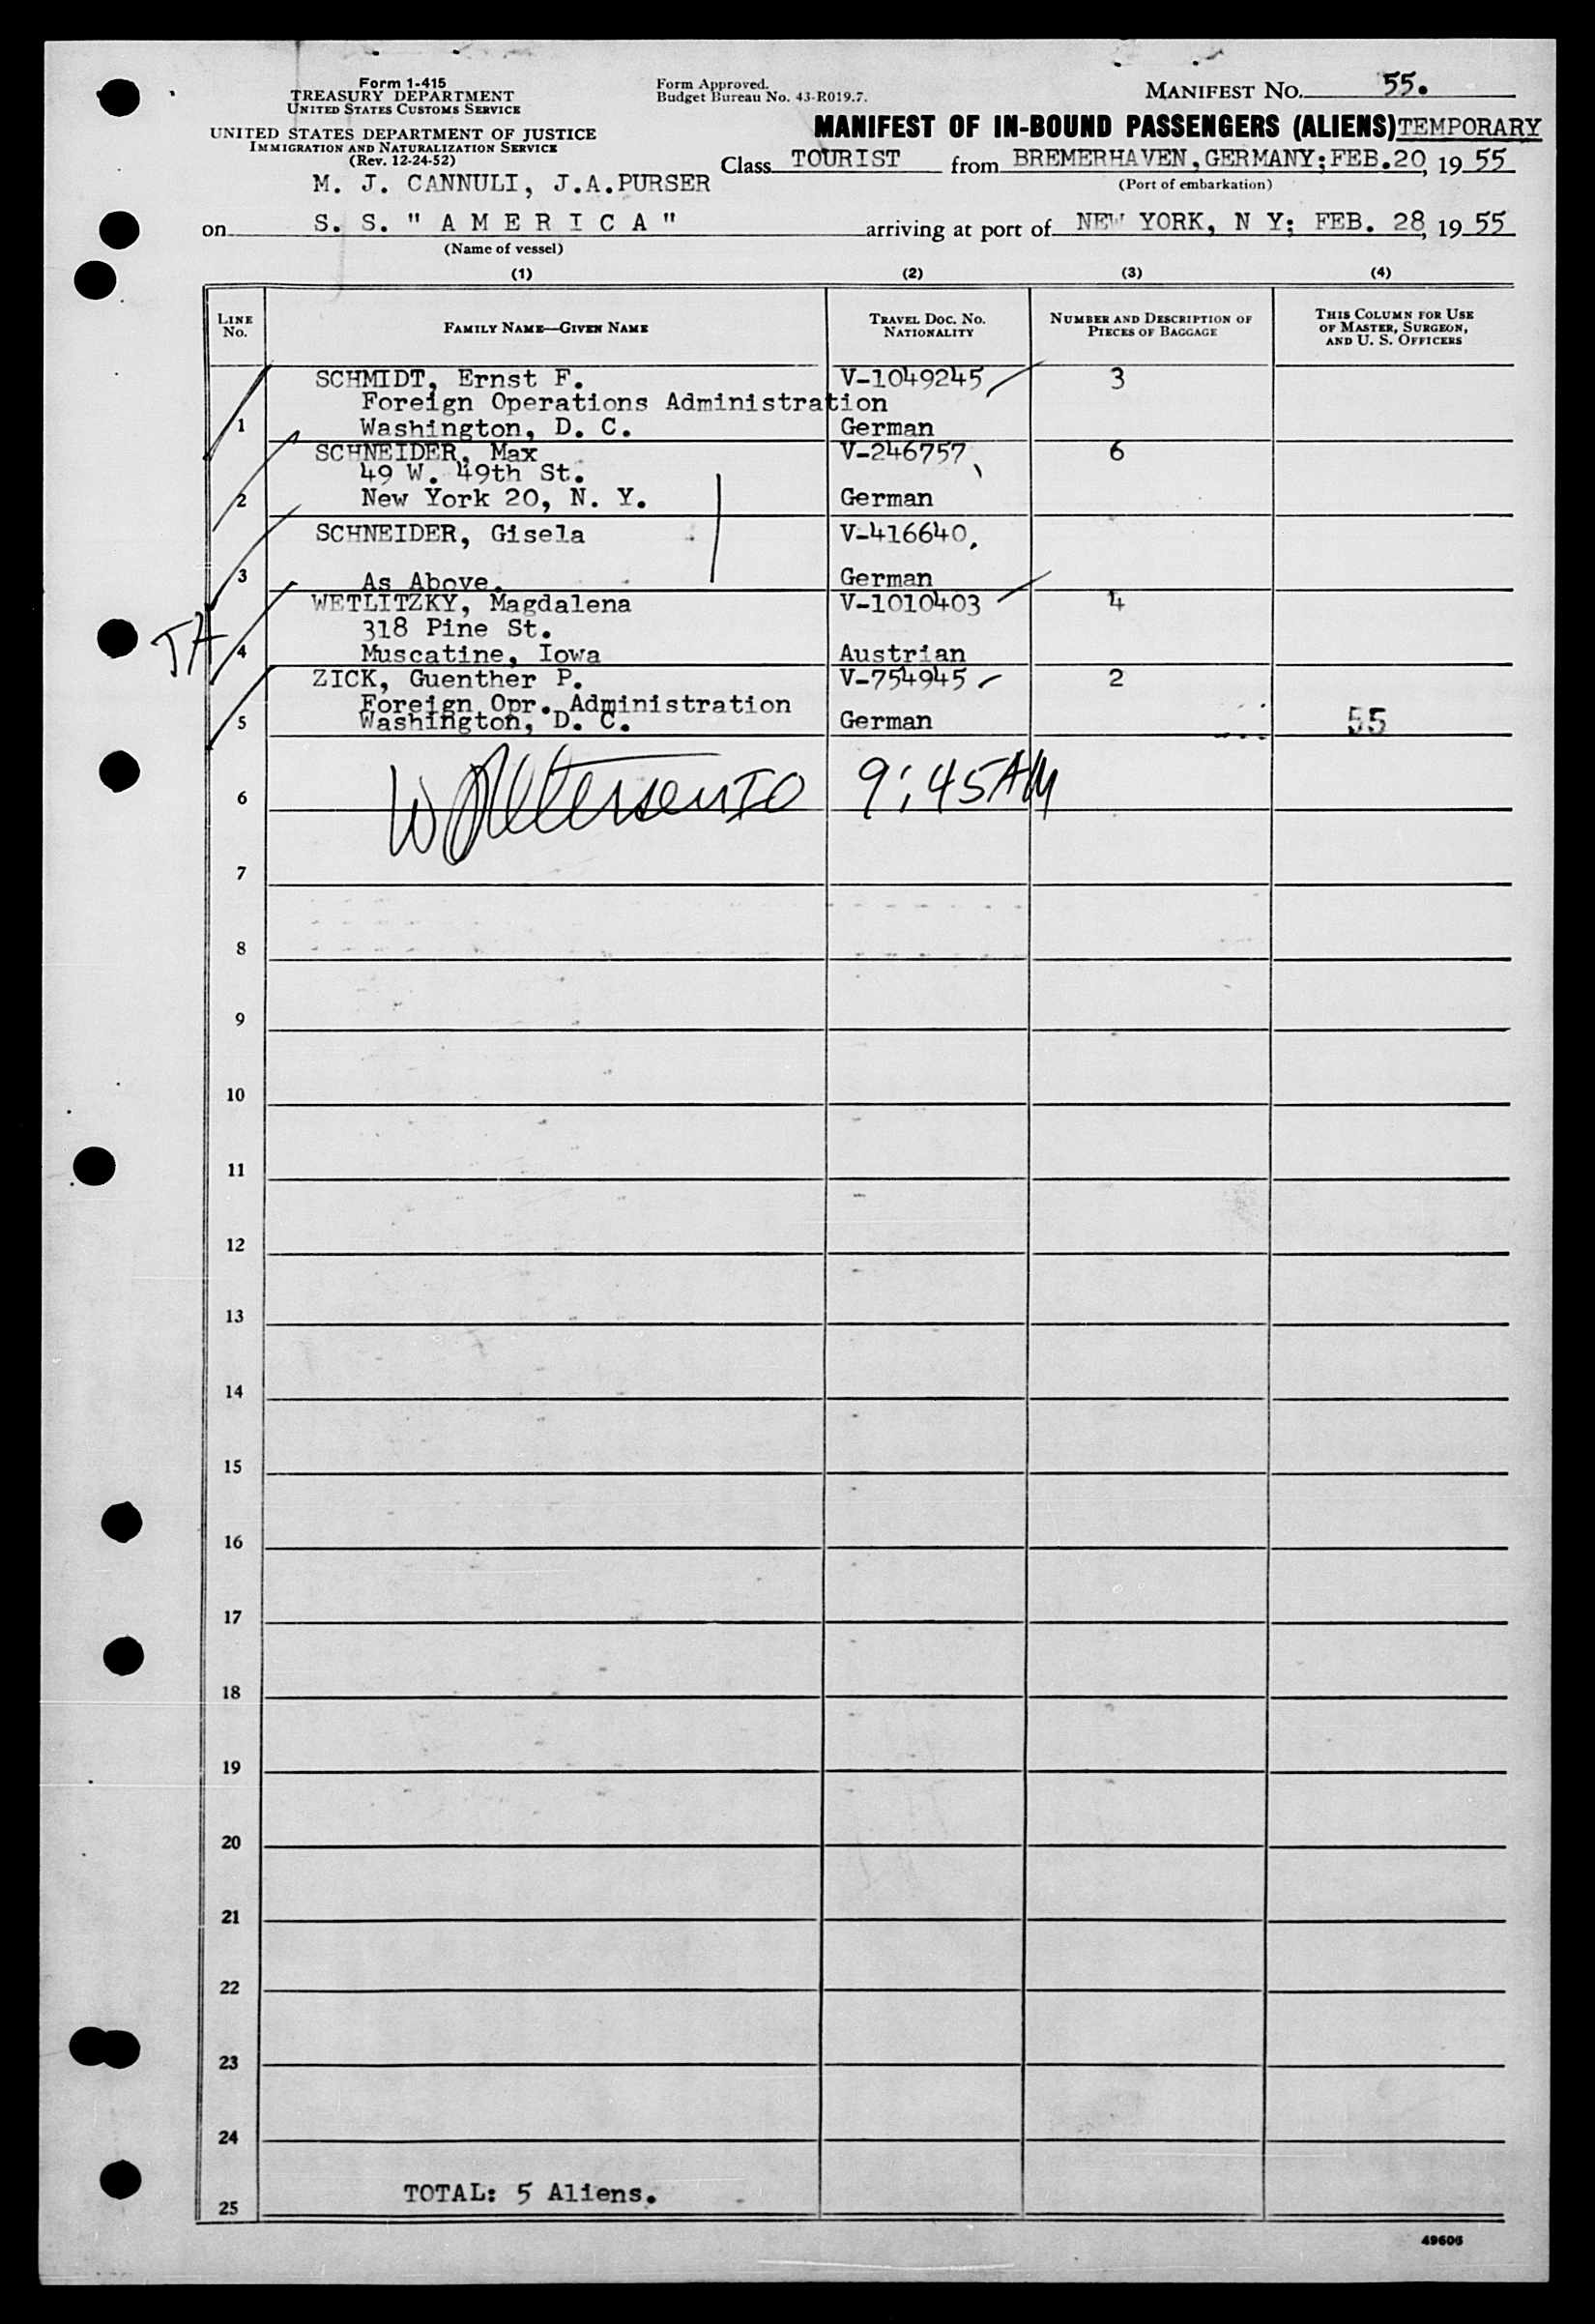 Form 1-415
TREASURY DEPARTMENT
UNITED STATES CUSTOMS SERVICE
UNITED STATES DEPARTMENT OF JUSTICE
IMMIGRATION AND NATURALIZATION SERVICE
(Rev. 12-24-52)
Form Approved.
Budget Bureau No. 43-R019.7.
MANIFEST NO. 55.
MANIFEST OF IN-BOUND PASSENGERS (ALIENS) TEMPORARY
Class TOURIST from BREMERHAVEN, GERMANY; FEB. 20, 19 55
(Port of embarkation)
M. J. CANNULI, J.A.PURSER
on S. S. " A M E R I C A " arriving at port of NEW YORK, N Y; FEB. 28, 19 55
(Name of vessel)
(1) (2) (3) (4)
LINE NO. FAMILY NAME—GIVEN NAME TRAVEL DOC. NO. NATIONALITY NUMBER AND DESCRIPTION OF PIECES OF BAGGAGE THIS COLUMN FOR USE OF MASTER, SURGEON, AND U. S. OFFICERS
SCHMIDT, Ernst F. V-1049245 3
Foreign Operations Administration
1 Washington, D. C. German
SCHNEIDER, Max V-246757 6
49 W. 49th St.
2 New York 20, N. Y. German
SCHNEIDER, Gisela V-416640
3 As Above. German
WETLITZKY, Magdalena V-1010403 4
318 Pine St.
4 Muscatine, Iowa Austrian
ZICK, Guenther P. V-754945 2
Foreign Opr. Administration
5 Washington, D. C. German 55
6 9:45 AM
7
8
9
10
11
12
13
14
15
16
17
18
19
20
21
22
23
24
TOTAL: 5 Aliens.
25
49606